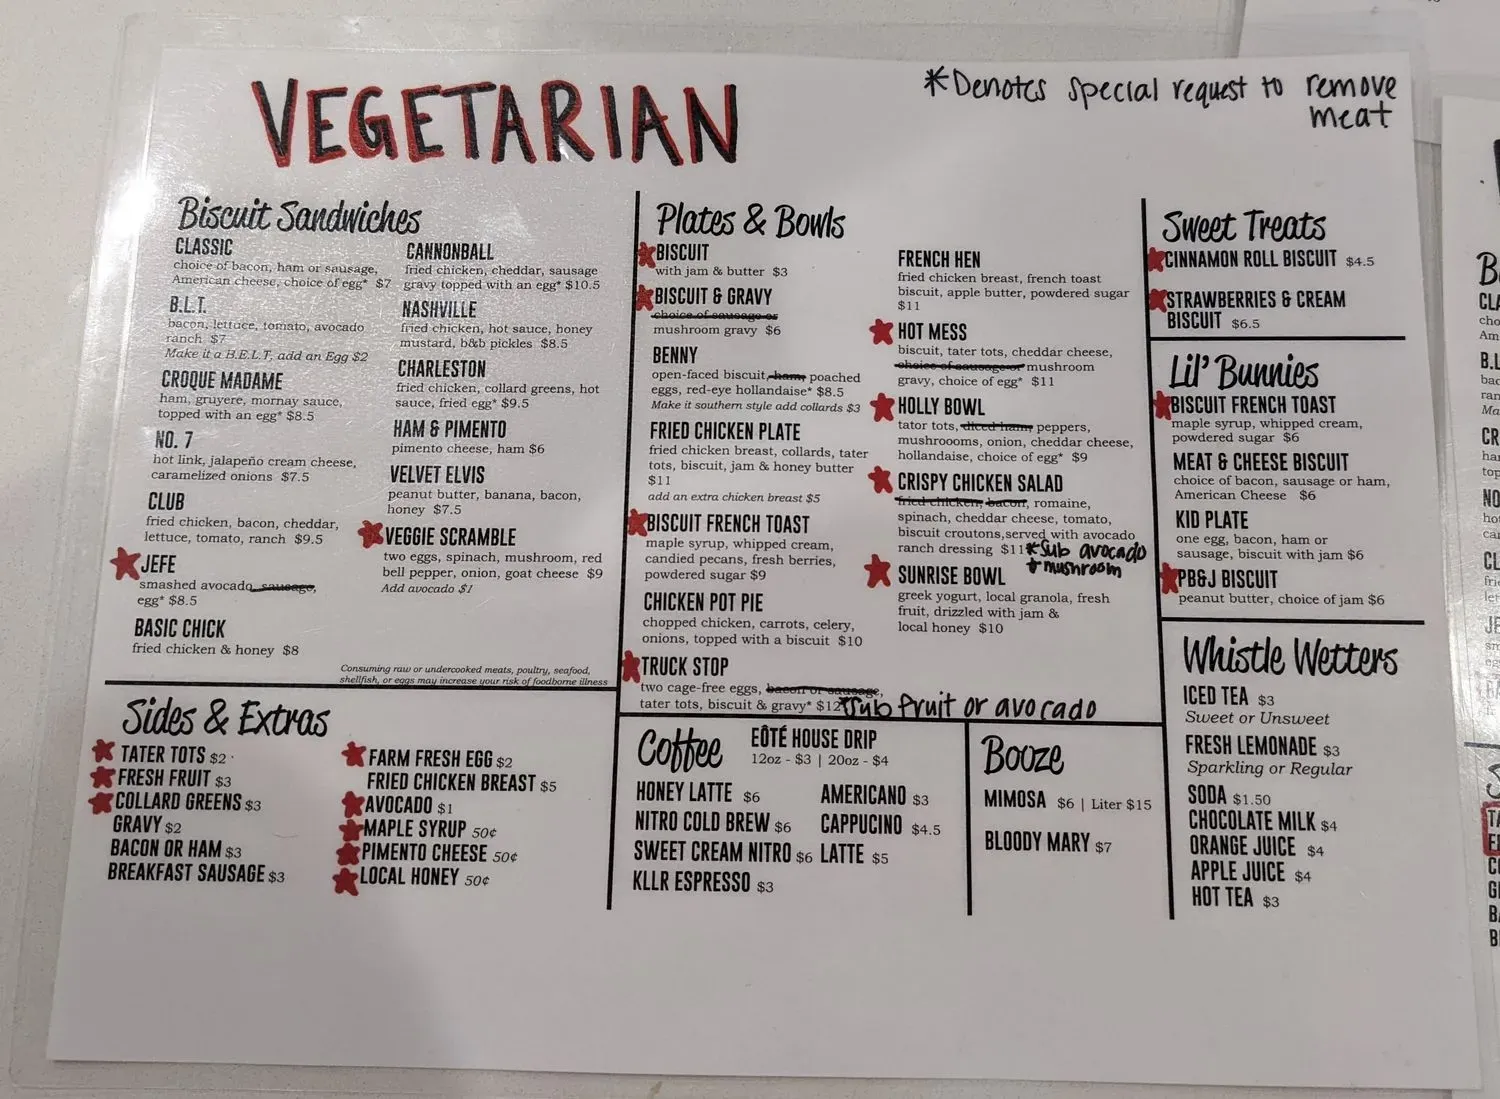 VEGETARIAN
*Denotes special request to remove
meat
Biscuit Sandwiches
CLASSIC
choice of bacon, ham or sausage,
American cheese, choice of egg* $7
B.L.T.
bacon, lettuce, tomato, avocado
ranch $7
Make it a B.E.L.T, add an Egg $2
CROQUE MADAME
ham, gruyere, mornay sauce,
topped with an egg* $8.5
NO. 7
hot link, jalapeño cream cheese,
caramelized onions $7.5
CLUB
fried chicken, bacon, cheddar,
lettuce, tomato, ranch $9.5
JEFE
smashed avocado, sausage,
egg* $8.5
BASIC CHICK
fried chicken & honey $8
CANNONBALL
fried chicken, cheddar, sausage
gravy topped with an egg* $10.5
NASHVILLE
fried chicken, hot sauce, honey
mustard, b&b pickles $8.5
CHARLESTON
fried chicken, collard greens, hot
sauce, fried egg* $9.5
HAM & PIMENTO
pimento cheese, ham $6
VELVET ELVIS
peanut butter, banana, bacon,
honey $7.5
VEGGIE SCRAMBLE
two eggs, spinach, mushroom, red
bell pepper, onion, goat cheese $9
Add avocado $1
Consuming raw or undercooked meats, poultry, seafood,
shellfish, or eggs may increase your risk of foodborne illness
Plates & Bowls
BISCUIT
with jam & butter $3
BISCUIT & GRAVY
choice of sausage or
mushroom gravy $6
BENNY
open-faced biscuit, ham, poached
eggs, red-eye hollandaise* $8.5
Make it southern style add collards $3
FRIED CHICKEN PLATE
fried chicken breast, collards, tater
tots, biscuit, jam & honey butter
$11
add an extra chicken breast $5
BISCUIT FRENCH TOAST
maple syrup, whipped cream,
candied pecans, fresh berries,
powdered sugar $9
CHICKEN POT PIE
chopped chicken, carrots, celery,
onions, topped with a biscuit $10
TRUCK STOP
two cage-free eggs, bacon or sausage,
tater tots, biscuit & gravy* $12 *Sub fruit or avocado
FRENCH HEN
fried chicken breast, french toast
biscuit, apple butter, powdered sugar
$11
HOT MESS
biscuit, tater tots, cheddar cheese,
choice of sausage or mushroom
gravy, choice of egg* $11
HOLLY BOWL
tator tots, diced ham, peppers,
mushroooms, onion, cheddar cheese,
hollandaise, choice of egg* $9
CRISPY CHICKEN SALAD
fried chicken, bacon, romaine,
spinach, cheddar cheese, tomato,
biscuit croutons,served with avocado
ranch dressing $11 *Sub avocado
+ mushroom
SUNRISE BOWL
greek yogurt, local granola, fresh
fruit, drizzled with jam &
local honey $10
Sweet Treats
CINNAMON ROLL BISCUIT $4.5
STRAWBERRIES & CREAM
BISCUIT $6.5
Lil' Bunnies
BISCUIT FRENCH TOAST
maple syrup, whipped cream,
powdered sugar $6
MEAT & CHEESE BISCUIT
choice of bacon, sausage or ham,
American Cheese $6
KID PLATE
one egg, bacon, ham or
sausage, biscuit with jam $6
PB&J BISCUIT
peanut butter, choice of jam $6
Whistle Wetters
ICED TEA $3
Sweet or Unsweet
FRESH LEMONADE $3
Sparkling or Regular
SODA $1.50
CHOCOLATE MILK $4
ORANGE JUICE $4
APPLE JUICE $4
HOT TEA $3
Sides & Extras
TATER TOTS $2
FRESH FRUIT $3
COLLARD GREENS $3
GRAVY $2
BACON OR HAM $3
BREAKFAST SAUSAGE $3
FARM FRESH EGG $2
FRIED CHICKEN BREAST $5
AVOCADO $1
MAPLE SYRUP 50¢
PIMENTO CHEESE 50¢
LOCAL HONEY 50¢
Coffee
EÔTÉ HOUSE DRIP
12oz - $3 | 20oz - $4
HONEY LATTE $6
NITRO COLD BREW $6
SWEET CREAM NITRO $6
KLLR ESPRESSO $3
AMERICANO $3
CAPPUCINO $4.5
LATTE $5
Booze
MIMOSA $6 | Liter $15
BLOODY MARY $7